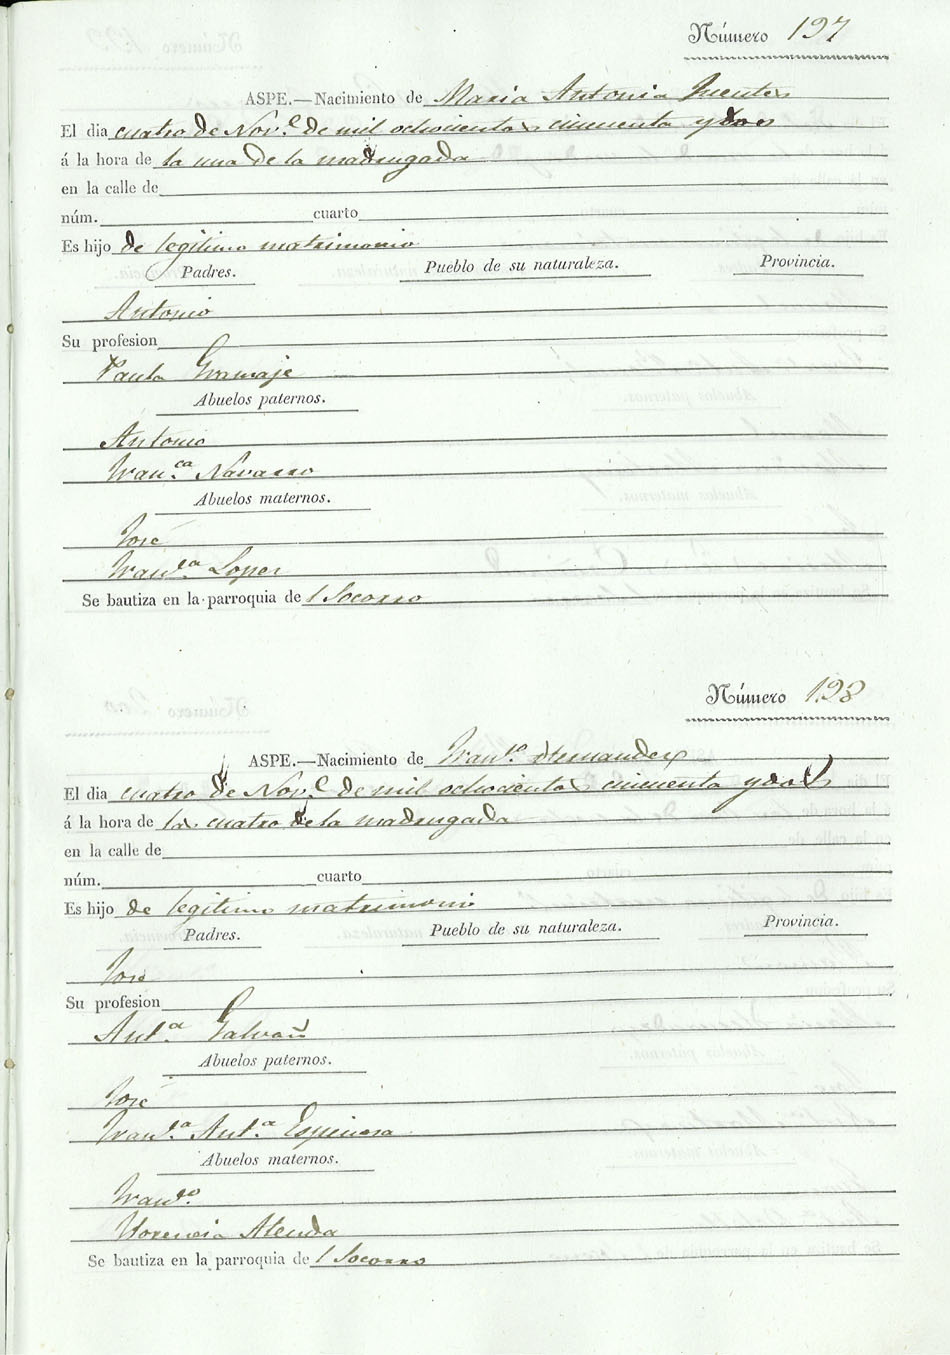 Número 197
ASPE.—Nacimiento de Maria Antonia Fuentes
El dia cuatro de Nov.e de mil ochocientos cincuenta y dos
á la hora de la una de la madrugada
en la calle de
núm. cuarto
Es hijo de legitimo matrimonio
Padres. Pueblo de su naturaleza. Provincia.
Antonio
Su profesion
Paula Gramaje
Abuelos paternos.
Antonio
Fran.ca Navarro
Abuelos maternos.
José
Fran.ca Lopez
Se bautiza en la parroquia de l Socorro
Número 198
ASPE.—Nacimiento de Fran.co Hernandez
El dia cuatro de Nov.e de mil ochocientos cincuenta y dos
á la hora de las cuatro de la madrugada
en la calle de
núm. cuarto
Es hijo de legitimo matrimonio
Padres. Pueblo de su naturaleza. Provincia.
José
Su profesion
Ant.a Galvañ
Abuelos paternos.
José
Fran.ca Ant.a Espinosa
Abuelos maternos.
Fran.co
Florencia Alenda
Se bautiza en la parroquia de l Socorro